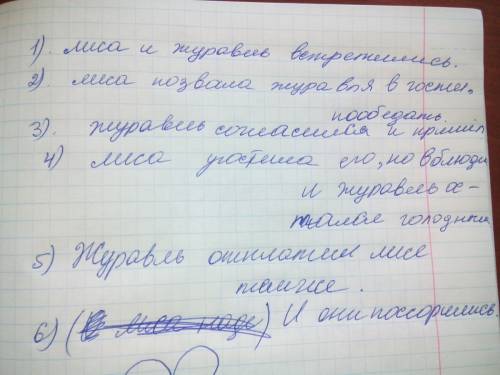 1). лиса и журавль встретились.
2). лиса позвала журавля в гости,
пообедать.
3). журавль согласился и пришёл
4) лиса угостила его, но в блюди
и журавль о-
стался голодным
5) Журавль отплатил лисе
также.
6) И они поссорились.